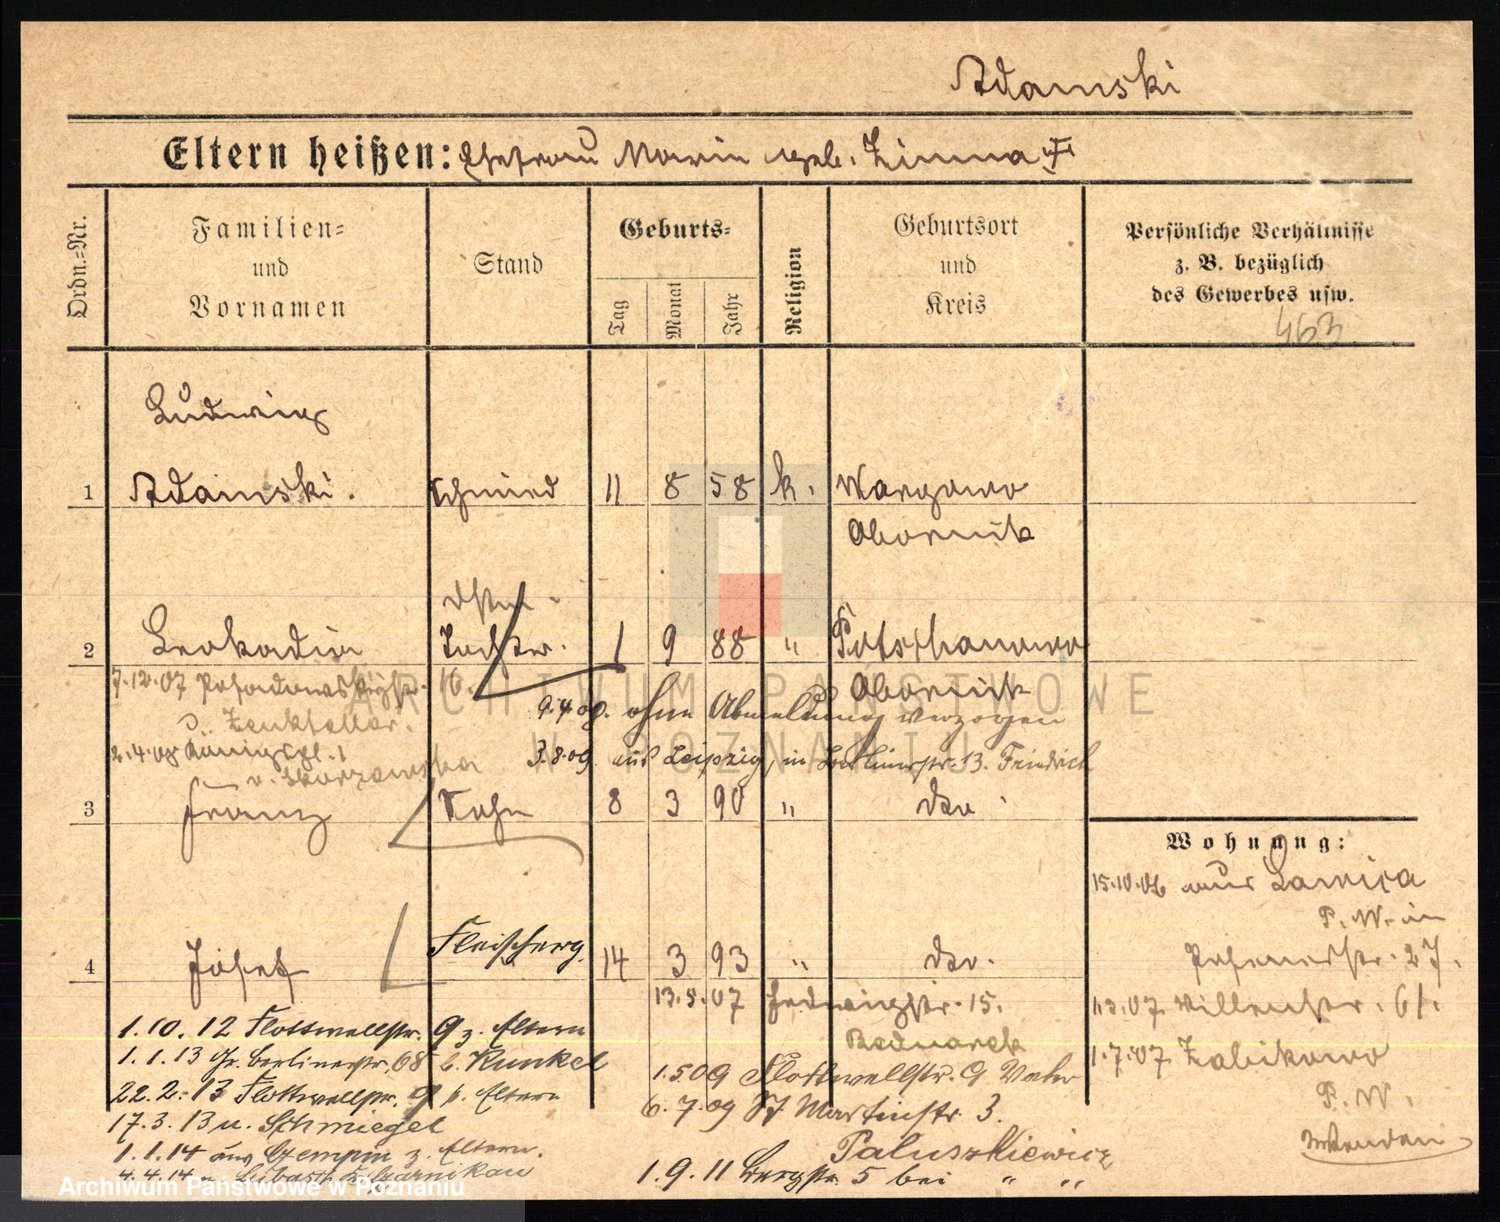 Adamski
Eltern heißen: Ehefrau Maria geb. Zimna
Ordn.=Nr.
Familien=
und
Vornamen
Stand
Geburts=
Tag
Monat
Jahr
Religion
Geburtsort
und
Kreis
Persönliche Verhältnisse
z. B. bezüglich
des Gewerbes usw.
463
Ludwig
1 Adamski. Schmied 11 8 58 k. Wargowo
Obornik
2 Leokadia Tochter. 1 9 88 " Potschanowo
Obornik
7.12.07 16.
9.4.09. ohne Abmeldung verzogen
2.4.09 Königspl. 1
3.8.09. aus Leipzig, in Berlinerstr. 13. Friedrich
3 Franz Sohn 8 3 90 " do
Wohnung:
15.10.06 aus Lawica
P. W. in
4 Josef Fleischerg. 14 3 93 " do.
Posenerstr. 27.
13.5.07 Hedwigstr. 15.
Bednarek
1.3.07
1.7.07 Zabikowo
P. W.
1.10.12 Flottwellstr. 9 z. Eltern
1.1.13 Gr. Berlinerstr. 68 b. Kunkel
22.2.13 Flottwellstr. 9 b. Eltern
17.3.13 n. Schmiegel
1.1.14 aus Czempin z. Eltern.
4.4.14
1.5.09 Flottwellstr. 9 Vater
6.7.09 St. Martinstr. 3.
Paluszkiewicz
1.9.11 Bergstr. 5 bei " "
ARCHIWUM PAŃSTWOWE
W POZNANIU
Archiwum Państwowe w Poznaniu